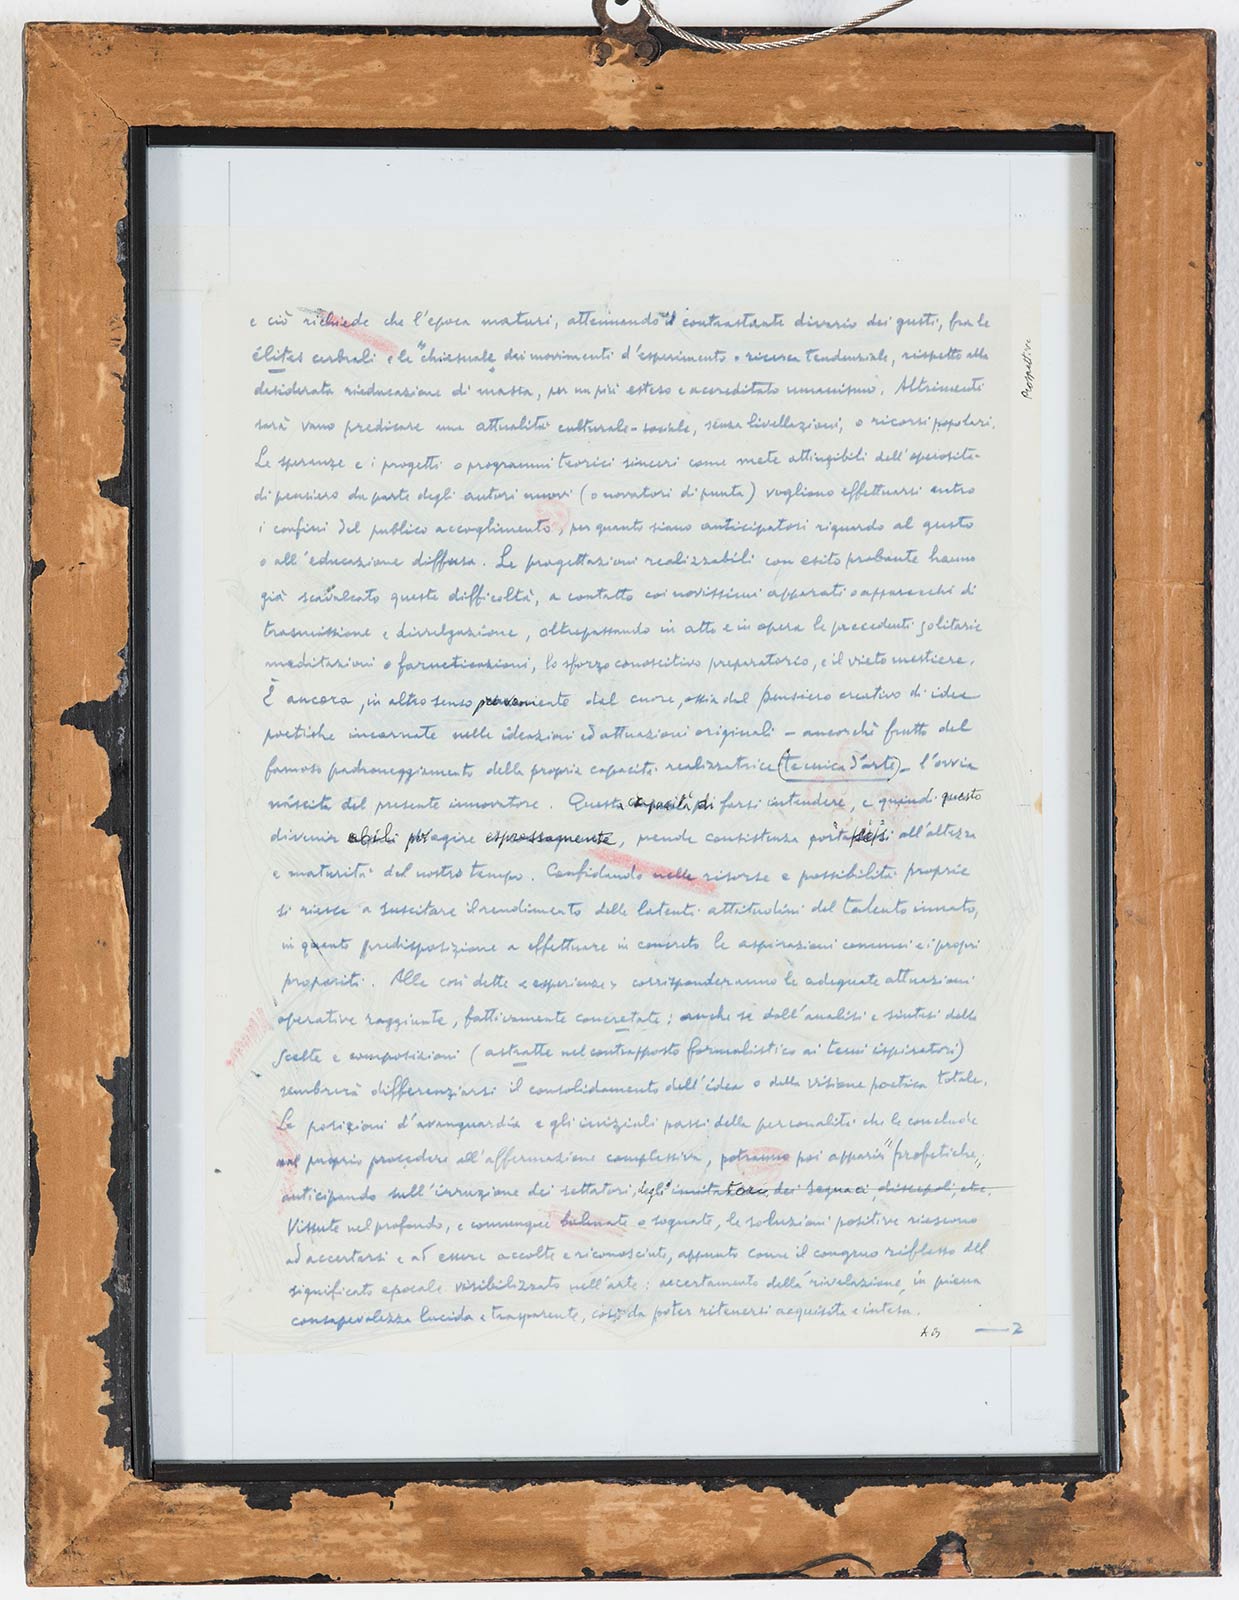 e ciò richiede che l'epoca maturi, attenuando il contrastante divario dei gusti, fra le
élites cerebrali e le "chiesuole" dei movimenti d'esperimento o ricerca tendenziale, rispetto alla
desiderata rieducazione di massa, per un più esteso e accreditato umanismo. Altrimenti
sarà vano predicare una attualità culturale-sociale, senza livellazioni, o ricorsi popolari.
Le speranze e i progetti o programmi teorici sinceri come mete attingibili dell'operosità
di pensiero da parte degli autori nuovi (o novatori di punta) vogliono effettuarsi entro
i confini del publico accoglimento, per quanto siano anticipatosi riguardo al gusto
o all'educazione diffusa. Le progettazioni realizzabili con esito probante hanno
già scavalcato queste difficoltà, a contatto coi novissimi apparati o apparecchi di
trasmissione e divulgazione, oltrepassando in atto e in opera le precedenti solitarie
meditazioni o farneticazioni, lo sforzo conoscitivo preparatorio, e il vieto mestiere.
È ancora, in altro senso proveniente dal cuore, ossia dal pensiero creativo di idee
poetiche incarnate nelle ideazioni ed attuazioni originali – ancorché frutto del
famoso padroneggiamento della propria capacità realizzatrice (tecnica d'arte) – l'ovvia
nascita del presente innovatore. Questa capacità di farsi intendere, e quindi questo
divenir abili per agire espressamente, prende consistenza all'altezza
e maturità del nostro tempo. Confidando nelle risorse e possibilità proprie
si riesce a suscitare il rendimento delle latenti attitudini del talento innato,
in quanto predisposizione a effettuare in concreto le aspirazioni comuni e i propri
propositi. Alle così dette «esperienze» corrisponderanno le adeguate attuazioni
operative raggiunte, fattivamente concretate; anche se dall'analisi e sintesi delle
scelte e composizioni (astratte nel contrapposto formalistico ai temi ispiratori)
sembrerà differenziarsi il consolidamento dell'idea o della visione poetica totale.
Le posizioni d'avanguardia e gli iniziali passi della personalità che le conclude
nel proprio procedere all'affermazione complessiva, potranno poi apparir "profetiche",
anticipando sull'irruzione dei settatori, degli imitatori, dei seguaci, discepoli, etc.
Vissute nel profondo, e comunque o sognate, le soluzioni positive riescono
ad accertarsi e ad essere accolte e riconosciute, appunto come il congruo riflesso del
significato epocale visibilizzato nell'arte: accertamento della rivelazione, in piena
consapevolezza lucida e trasparente, così da poter ritenersi acquisita e intesa.
— 2
Prospettive